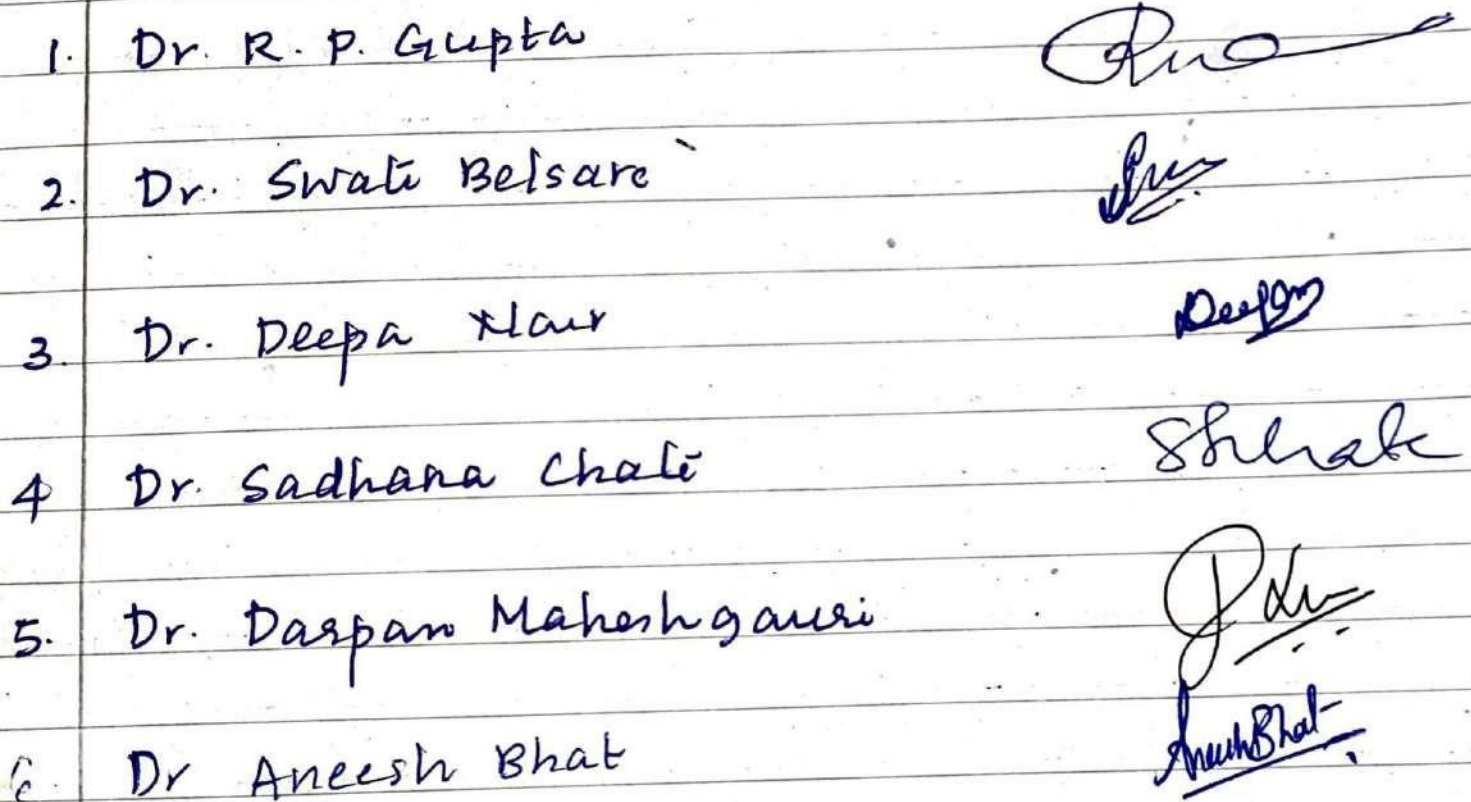 1. Dr. R. P. Gupta
2. Dr. Swati Belsare
3. Dr. Deepa Nair
4 Dr. Sadhana Chate
5. Dr. Darpan Maheshgauri
6. Dr Aneesh Bhat AneeshBhat